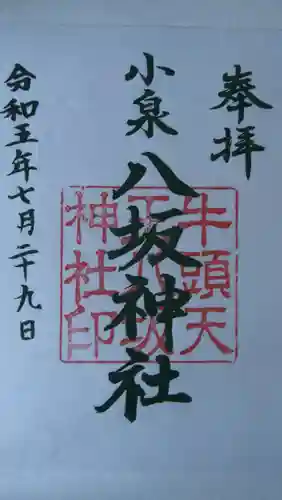 奉拝
小泉
八坂神社
令和五年七月二十九日
牛頭天
神社印